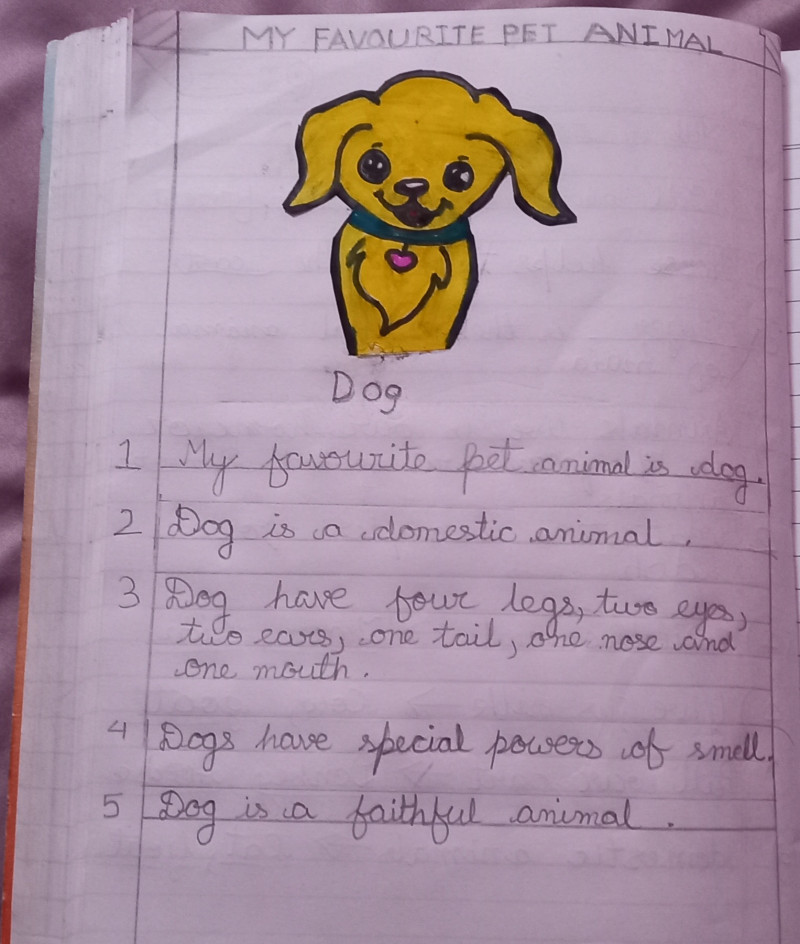 MY FAVOURITE PET ANIMAL
Dog
1 My favourite pet animal is dog.
2 Dog is a domestic animal.
3 Dog have four legs, two eyes,
two ears, one tail, one nose and
one mouth.
4 Dogs have special powers of smell.
5 Dog is a faithful animal.